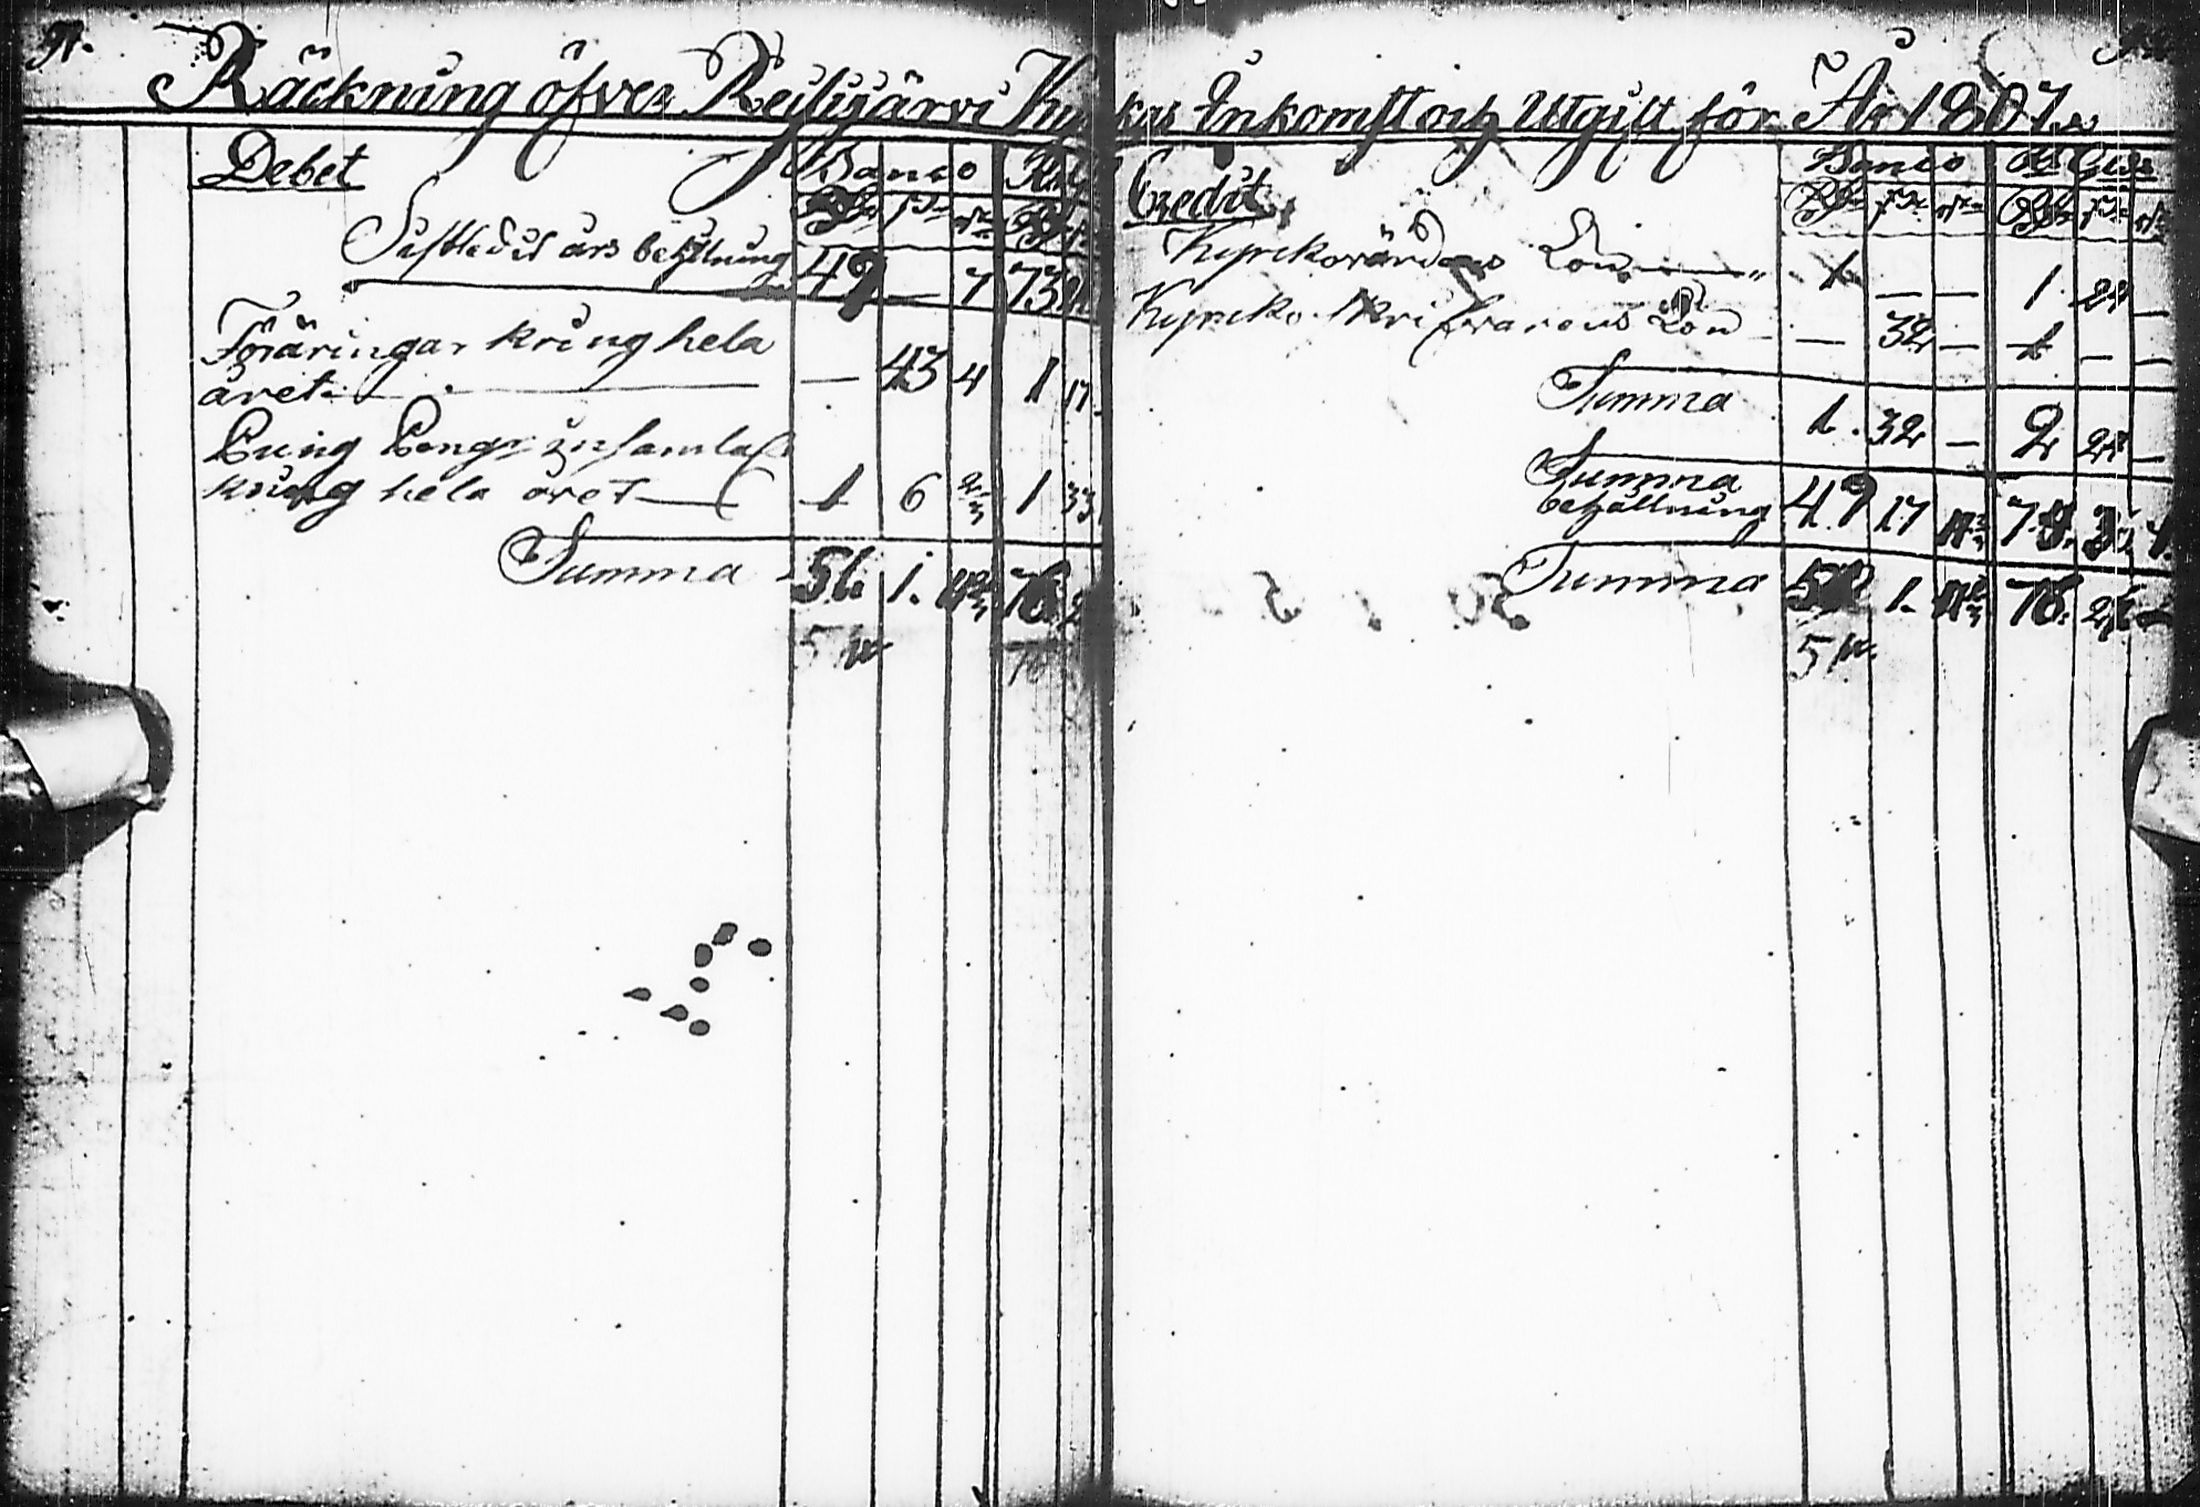 Räckning öfver Reisjärvi Kyrkas Inkomst och Utgift för År 1807.
Debet
Banco
Sistledit års behållning 49 — 7 73
Föräringar kring hela
året — 43 4 1 17
Pung Pengr insamlat
kring hela året 1 6 2/3 1 33
Summa 51 1. 4 2/3 76
Credit
Banco R Gldr
Kyrckovärdens Lön 1 — — 1 24 —
Kyrcko skrifvarens Lön — 32 — 1 — —
Summa 1. 32 — 2 24 —
Summa
behållning 49 17
Summa 1. 76.